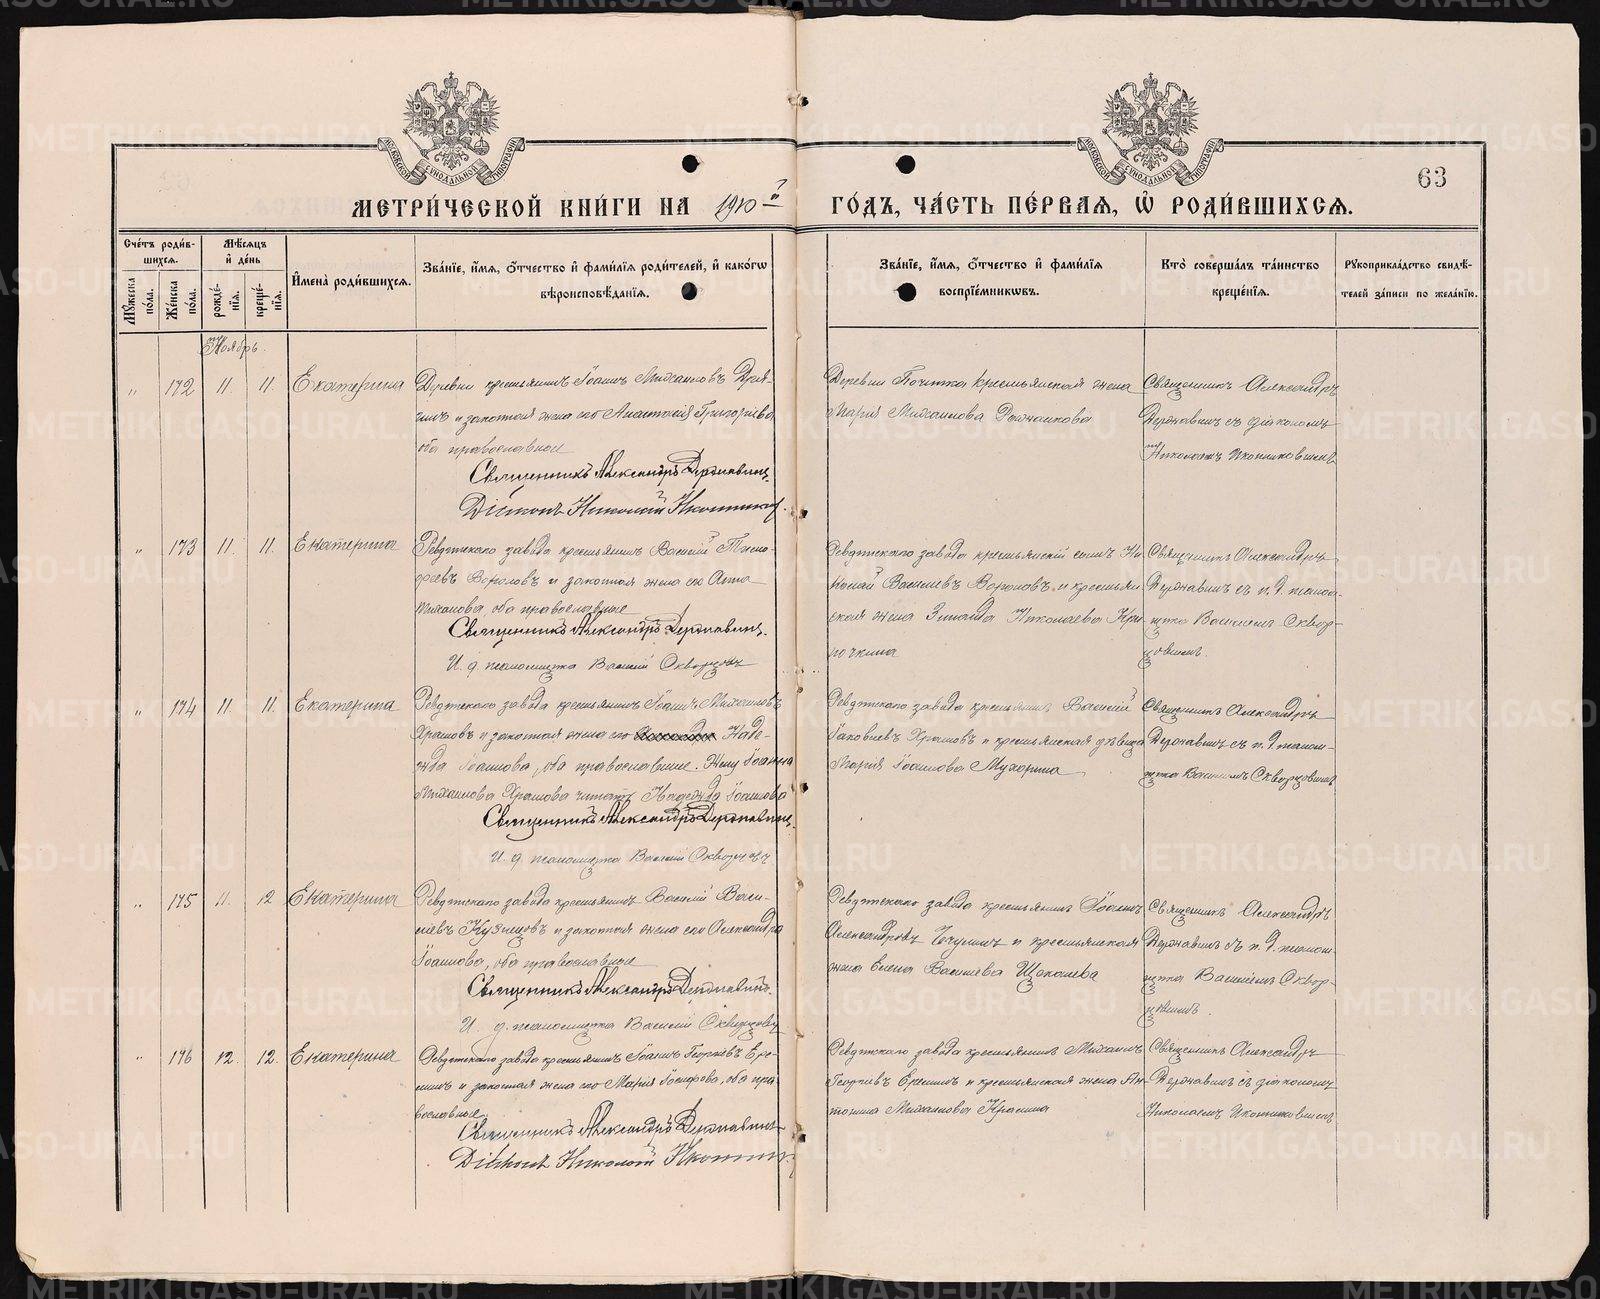 МЕТРИ́ЧЕСКОЙ КНИ́ГИ НА 1910 й
ГО́ДЪ, ЧА́СТЬ ПЕ́РВАЯ, Ѡ҆ РОДИ́ВШИХСЯ.
63
Сче́тъ роди́в-
шихся.
Мѣ́сяцъ
и҆ де́нь
Мꙋ́жеска
по́ла.
Же́нска
по́ла.
рожде́-
нїя.
креще́-
нїя.
И҆мена̀ роди́вшихся.
Зва́нїе, и҆́мя, ѻ҆́тчество и҆ фами́лїя роди́телей, и҆ како́гѡ
вѣроисповѣ́данїя.
Зва́нїе, и҆́мя, ѻ҆́тчество и҆ фами́лїя
воспрїе́мникѡвъ.
Кто̀ соверша́лъ та́инство
креще́нїя.
Рꙋкоприкла́дство свидѣ́-
телей за́писи по жела́нїю.
Ноябрь.
„ 172 11. 11. Екатерина
Деревни крестьянинъ Іоаннъ Михаиловъ
и законная жена его Анастасія Григорьева,
оба православные
Священникъ Александръ Державинъ.
Діаконъ Николай Иконников
Деревни Починка крестьянская жена
Марія Михаилова
Священникъ Александръ
Державинъ съ діакономъ
Николаемъ Иконниковымъ
„ 173 11. 11. Екатерина
Ревдинскаго завода крестьянинъ Василій Тимо-
феевъ и законная жена его Анна
оба православные
Священникъ Александръ Державинъ.
И. д. псаломщика Василій Скворцовъ
Ревдинскаго завода крестьянскій сынъ Ни-
колай Васильевъ и крестьян-
ская жена Зинаида Николаева Кри-
Священникъ Александръ
Державинъ съ и. д. псалом-
щика Василіемъ Сквор-
цовымъ.
„ 174 11. 11. Екатерина
Ревдинскаго завода крестьянинъ Іоаннъ Михаиловъ
Храмовъ и законная жена его Наде-
жда Іоаннова, оба православные. Жену Іоанна
Михаилова Храмова читать Надежда Іоаннова
Священникъ Александръ Державинъ.
И. д. псаломщика Василій Скворцовъ
Ревдинскаго завода крестьянинъ Василій
Іаковлевъ Храмовъ и крестьянская дѣвица
Марія Іоаннова Мухорина
Священникъ Александръ
Державинъ съ и. д. псалом-
щика Василіемъ Скворцовымъ
„ 175 11. 12 Екатерина
Ревдинскаго завода крестьянинъ Василій Васи-
льевъ Кузнецовъ и законная жена его Александра
Іоаннова, оба православные
Священникъ Александръ Державинъ.
И. д. псаломщика Василій Скворцовъ
Ревдинскаго завода крестьянинъ Іоаннъ
Александровъ и крестьянская
жена Елена Васильева Щеколева
Священникъ Александръ
Державинъ съ и. д. псалом-
щика Василіемъ Сквор-
цовымъ.
„ 176 12. 12. Екатерина
Ревдинскаго завода крестьянинъ Іоаннъ Георгіевъ Ере-
минъ и законная жена его Марія, оба пра-
вославные.
Священникъ Александръ Державинъ
Діаконъ Николай Иконник
Ревдинскаго завода крестьянинъ Михаилъ
Георгіевъ Ереминъ и крестьянская жена Ан-
тонина Михаилова
Священникъ Александръ
Державинъ съ діакономъ
Николаемъ Иконниковымъ
METRIKI.GASO-URAL.RU